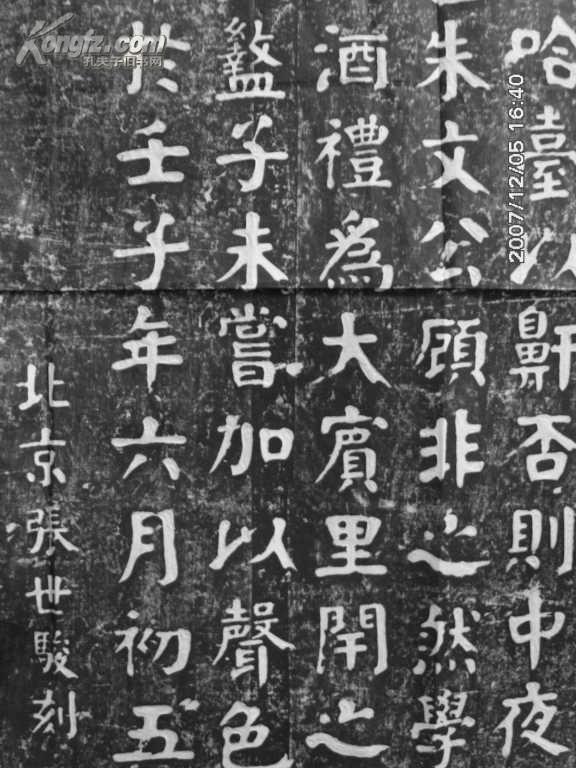 哈臺以鼾否則中夜
朱文公顧非之然學
酒禮爲大賓里閈之
子未嘗加以聲色
於壬子年六月初五
北京張世駿刻
2007/12/05 16:40
Kongfz.com
孔夫子旧书网